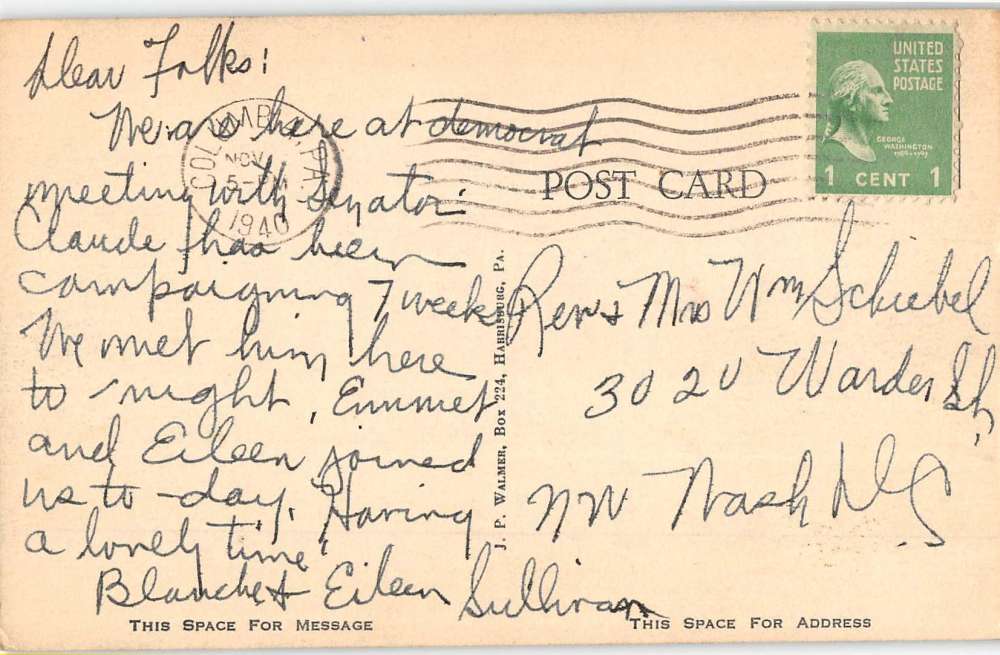 Dear Folks:
We are here at democrat
meeting with Senator
Claude has been
campaigning 7 weeks
We met him here
to-night, Emmet
and Eileen joined
us to-day. Having
a lovely time.
Blanche & Eileen Sullivan
THIS SPACE FOR MESSAGE
COLUMBIA, PA.
NOV
5
1940
UNITED
STATES
POSTAGE
GEORGE
WASHINGTON
1 CENT 1
POST CARD
J. P. WALMER, BOX 224, HARRISBURG, PA.
Rev & Mrs Wm Schiebel
3020 Warder St,
NW Wash D C
THIS SPACE FOR ADDRESS